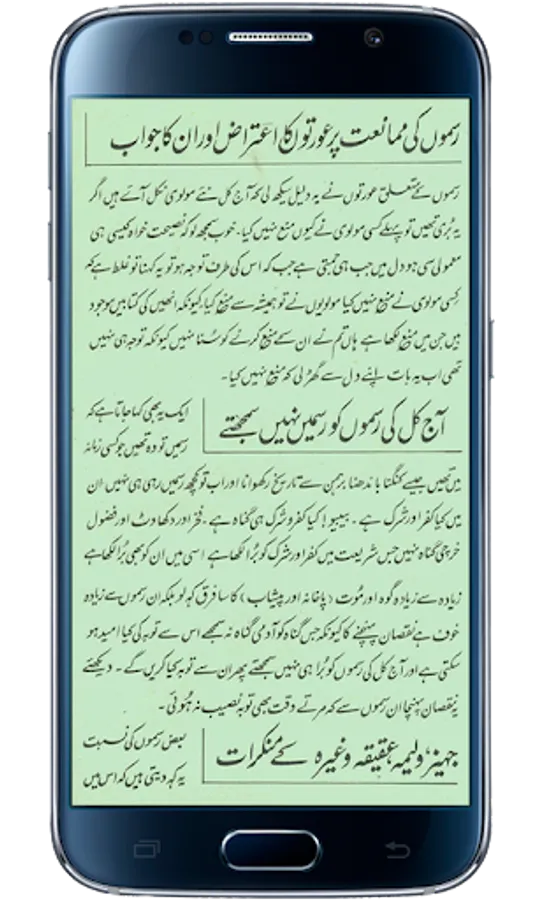 رسموں کی ممانعت پر عورتوں کا اعتراض اور ان کا جواب
رسموں کے متعلق عورتوں نے یہ دلیل سیکھ لی کہ آج کل نئے مولوی نکل آئے ہیں اگر
یہ بُری تھیں تو پہلے کسی مولوی نے کیوں منع نہیں کیا۔ خوب سمجھ لو کہ نصیحت خواہ کیسی ہی
معمولی سی ہو دل میں جب ہی جمتی ہے جب کہ اس کی طرف توجہ ہو تو یہ کہنا تو غلط ہے کہ
کسی مولوی نے منع نہیں کیا مولویوں نے تو ہمیشہ سے منع کیا، کیونکہ انھیں کی کتابیں موجود
ہیں جن میں منع لکھا ہے ہاں تم نے ان سے منع کرنے کو سُنا نہیں کیونکہ توجہ ہی نہیں
تھی اب یہ بات اپنے دل سے گھڑ لی کہ منع نہیں کیا۔
آج کل کی رسموں کو رسمیں نہیں سمجھتے
ایک یہ بھی کہا جاتا ہے کہ
رسمیں تو وہ تھیں جو کسی زمانہ
میں تھیں جیسے کنگنا باندھنا برہمن سے تاریخ رکھوانا اور اب تو کچھ رسمیں رہی ہی نہیں ان
میں کیا کفر اور شرک ہے۔ بیبیو! کیا کفر و شرک ہی گناہ ہے۔ فخر اور دکھاوٹ اور فضول
خرچی گناہ نہیں جس شریعت میں کفر اور شرک کو بُرا لکھا ہے اسی میں ان کو بھی بُرا لکھا ہے
زیادہ سے زیادہ گوہ اور مُوت (پاخانہ اور پیشاب) کا سا فرق کہہ لو بلکہ ان رسموں سے زیادہ
خوف ہے نقصان پہنچنے کا کیونکہ جس گناہ کو آدمی گناہ نہ سمجھے اس سے توبہ کی کیا امید ہو
سکتی ہے اور آج کل کی رسموں کو بُرا ہی نہیں سمجھتے پھر ان سے توبہ کیا کریں گے۔ دیکھئے
یہ نقصان پہنچا ان رسموں سے کہ مرتے وقت بھی توبہ نصیب نہ ہوئی۔
جہیز، ولیمہ، عقیقہ وغیرہ کے منکرات
بعض رسموں کی نسبت
یہ کہہ دیتی ہیں کہ اس میں